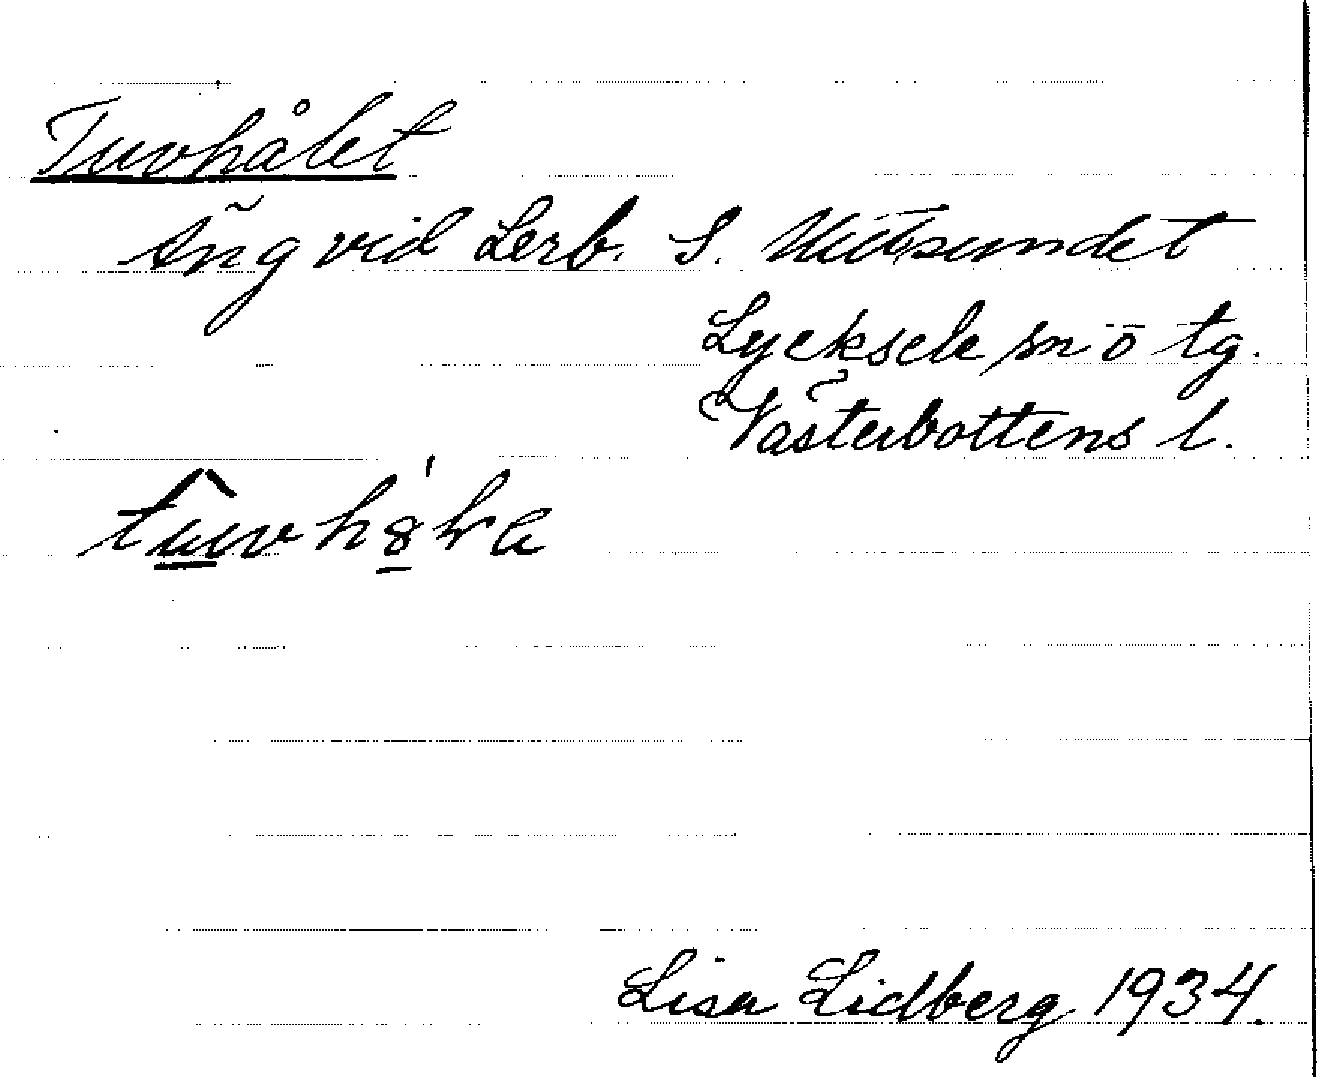 Tuvhålet
Äng vid Lerb. S.
Lycksele sn o tg.
Västerbottens l.
Lisa Lidberg 1934.